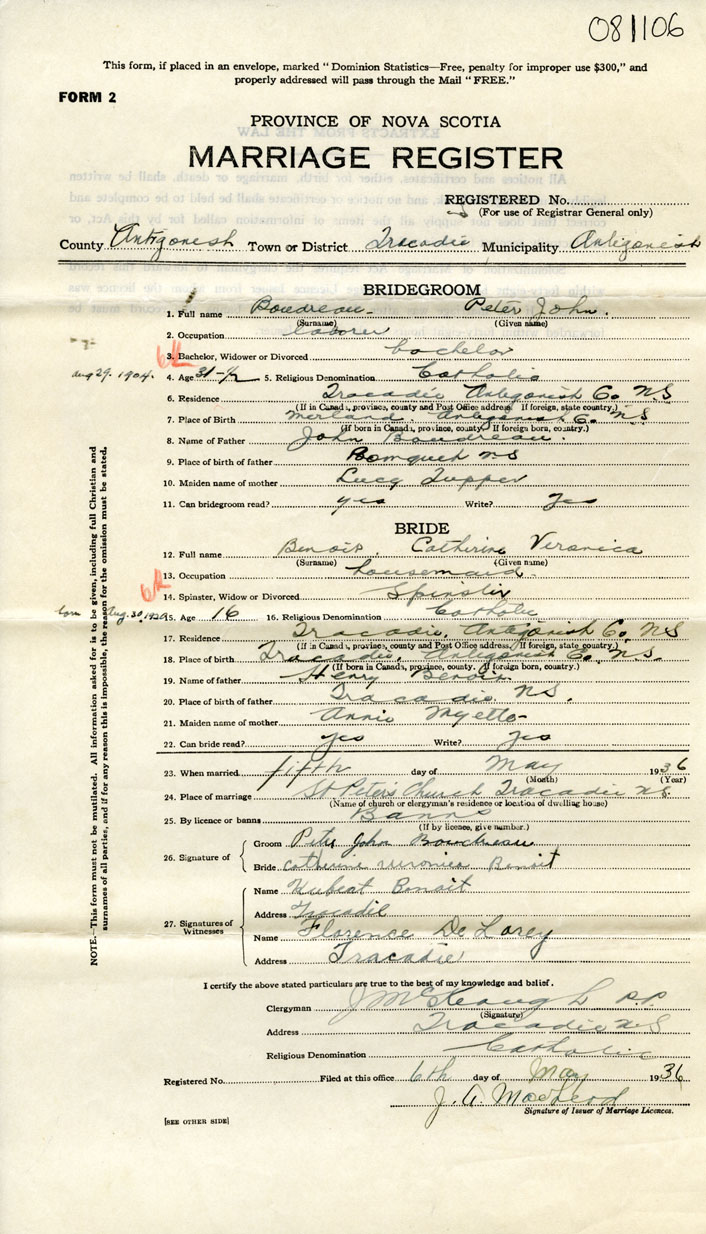 081106
This form, if placed in an envelope, marked "Dominion Statistics—Free, penalty for improper use $300," and
properly addressed will pass through the Mail "FREE."
FORM 2
PROVINCE OF NOVA SCOTIA
MARRIAGE REGISTER
REGISTERED No.
(For use of Registrar General only)
County Antigonish Town or District Tracadie Municipality Antigonish
BRIDEGROOM
1. Full name Boudreau Peter John.
(Surname) (Given name)
2. Occupation laborer
3. Bachelor, Widower or Divorced bachelor
aug 29. 1904. 4. Age 31-½ 5. Religious Denomination Catholic
6. Residence Tracadie Antigonish Co. N S
(If in Canada, province, county and Post Office address. If foreign, state country.)
7. Place of Birth Merland Antigonish Co. N S
(If born in Canada, province, county. If foreign born, country.)
8. Name of Father John Boudreau.
9. Place of birth of father Pomquet N S
10. Maiden name of mother Lucy Tupper
11. Can bridegroom read? yes Write? Yes
BRIDE
12. Full name Benoit, Catherine Veronica
(Surname) (Given name)
13. Occupation housemaid
14. Spinster, Widow or Divorced Spinster
born Aug. 30, 1920 15. Age 16 16. Religious Denomination Catholic
17. Residence Tracadie, Antigonish Co. N S
(If in Canada, province, county and Post Office address. If foreign, state country.)
18. Place of birth Tracadie, Antigonish Co. N.S.
(If born in Canada, province, county. If foreign born, country.)
19. Name of father Henry Benoit
20. Place of birth of father Tracadie N.S.
21. Maiden name of mother Annie Myette
22. Can bride read? Yes Write? Yes
23. When married fifth day of May 1936
(Month) (Year)
24. Place of marriage St Peter's Church Tracadie N.S.
(Name of church or clergyman's residence or location of dwelling house)
25. By licence or banns Banns
(If by licence, give number.)
26. Signature of
Groom Peter John Boudreau
Bride Catherine Veronica Benoit
27. Signatures of Witnesses
Name Hubert Benoit
Address Tracadie
Name Florence De Lorey
Address Tracadie
I certify the above stated particulars are true to the best of my knowledge and belief.
Clergyman J McKeough P.P.
(Signature)
Address Tracadie N S
Religious Denomination Catholic
Registered No. Filed at this office 6th day of May 1936
J. A. MacLeod
Signature of Issuer of Marriage Licences.
[SEE OTHER SIDE]
NOTE.—This form must not be mutilated. All information asked for is to be given, including full Christian and
surnames of all parties, and if for any reason this is impossible, the reason for the omission must be stated.